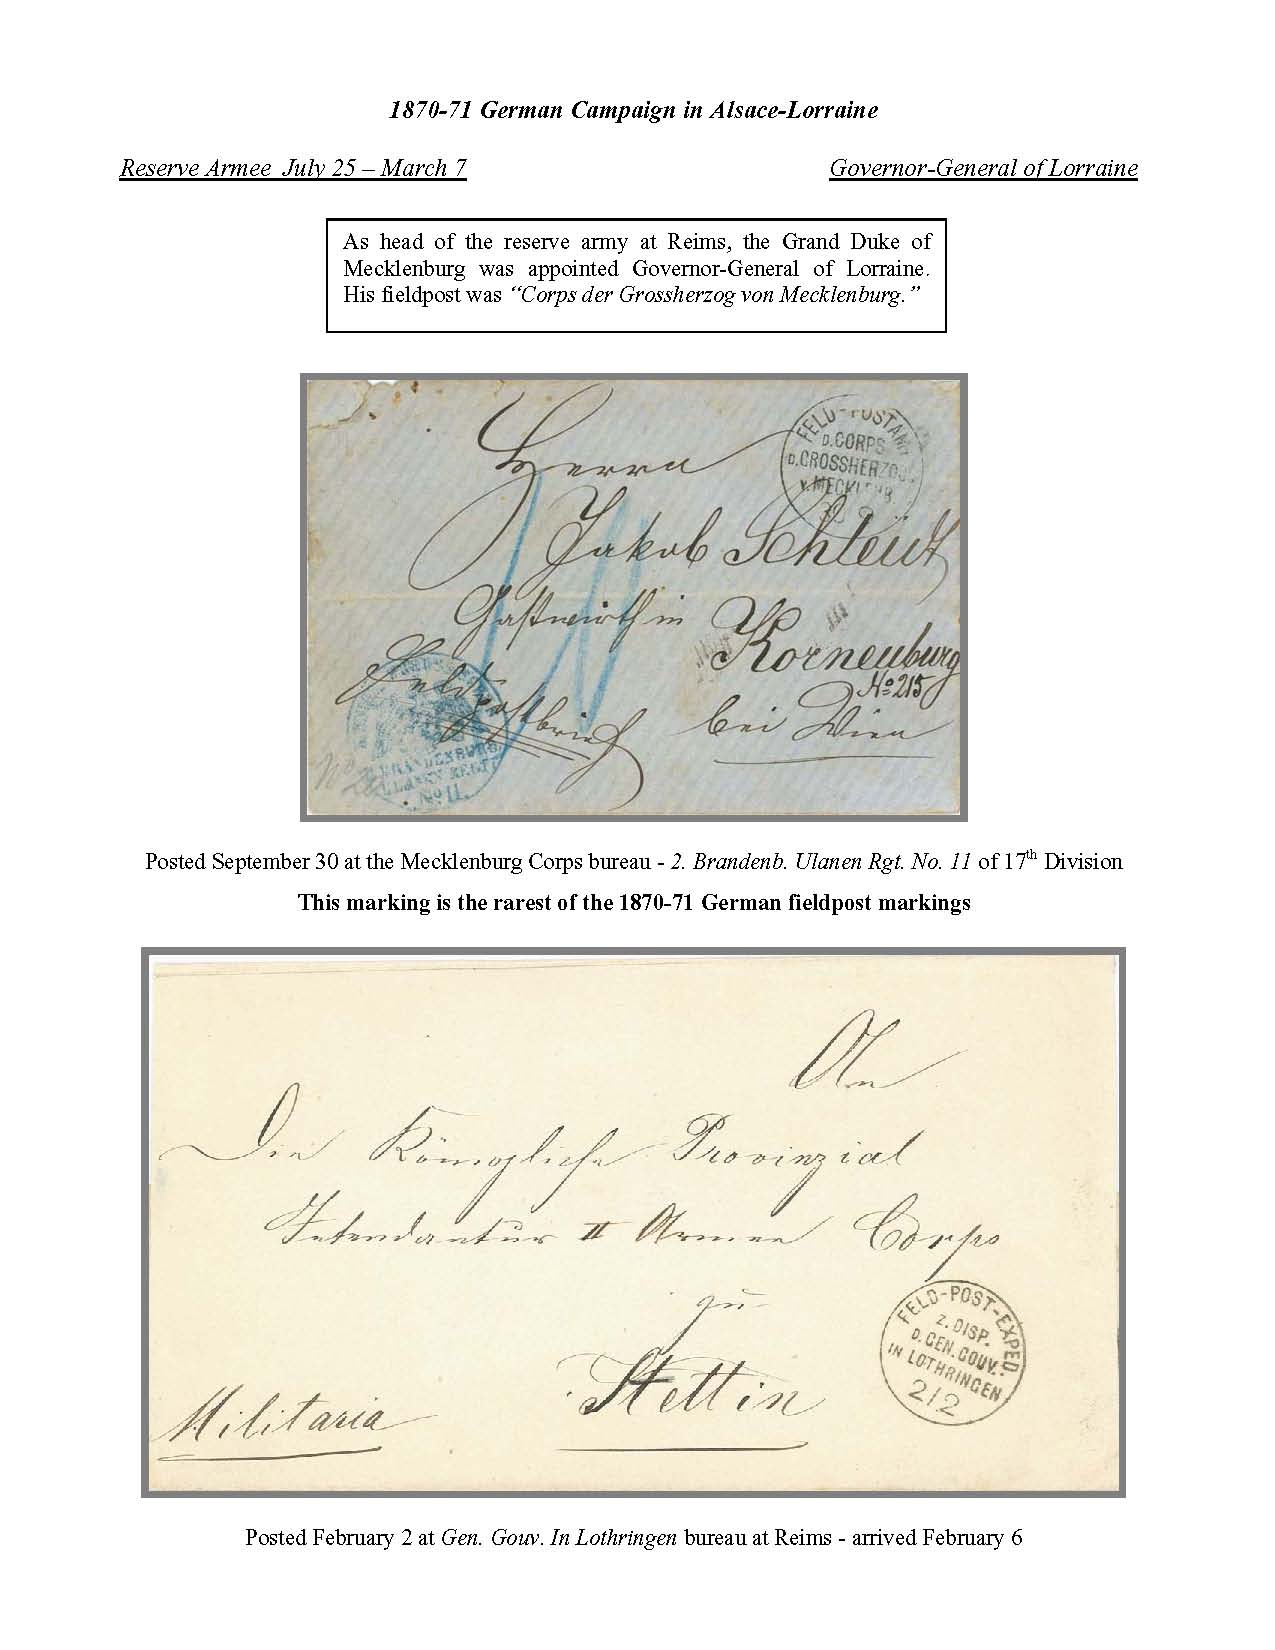 1870-71 German Campaign in Alsace-Lorraine
Reserve Armee July 25 – March 7
Governor-General of Lorraine
As head of the reserve army at Reims, the Grand Duke of
Mecklenburg was appointed Governor-General of Lorraine.
His fieldpost was “Corps der Grossherzog von Mecklenburg.”
FELD-POSTAMT
D. CORPS
D. GROSSHERZOG
v. MECKLENB.
30 9
Herrn
Jakob Schleutz
Gastwirth in
Korneuburg
No 215
Feldpostbrief
bei Wien
BRANDENBURG.
ULANEN REGTS
No 11.
Posted September 30 at the Mecklenburg Corps bureau - 2. Brandenb. Ulanen Rgt. No. 11 of 17th Division
This marking is the rarest of the 1870-71 German fieldpost markings
An
Die Königliche Provinzial
Intendantur II Armee Corps
zu
Stettin
Militaria
FELD-POST-EXPED.
z. DISP.
D. GEN. GOUV.
IN LOTHRINGEN
2/2
Posted February 2 at Gen. Gouv. In Lothringen bureau at Reims - arrived February 6